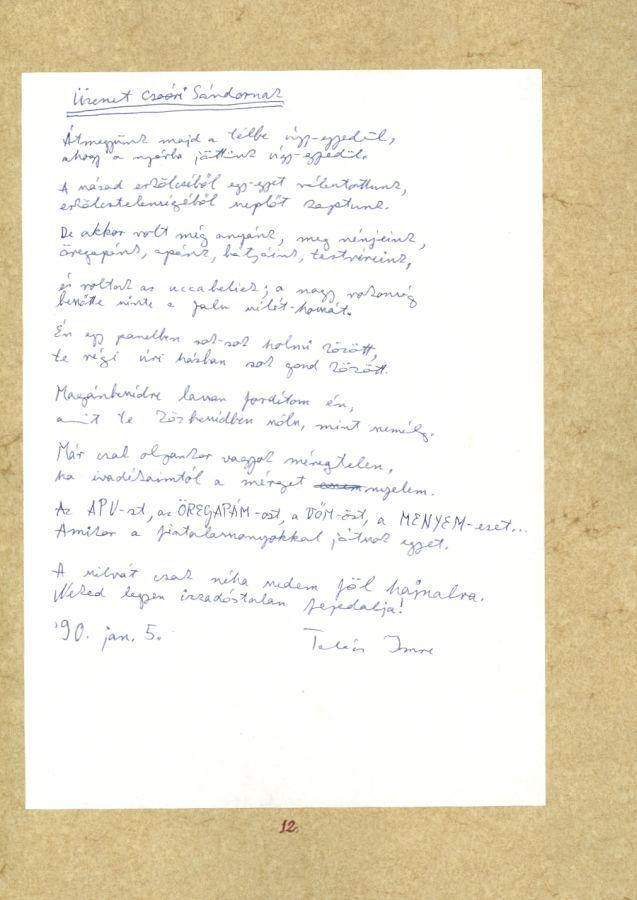 Üzenet Csoóri Sándornak
Átmegyünk majd a télbe úgy-egyedül,
ahogy a nyárba jöttünk úgy-egyedül.
A násad erkölcséből egy-egyet választottunk,
erkölcstelenségéből neplőt kaptunk.
De akkor volt még anyánk, meg nénjeink,
öregapánk, apánk, bátyáink, testvéreink,
és voltak az uccabeliek; a nagy rokonság
benőtte szinte a falu
Én egy panelben sok-sok holmi között,
te régi úri házban sok gond között.
Magánbeszédre lassan fordítom én,
amit te közbeszédben mólu, mint remélg.
Már csak olyankor vagyok méregtelen,
ha ivadékaimtól a mérget nyelem.
Az APU-zt, az ÖREGAPÁM-ozt, a VŐM-özt, a MENYEM-ezet...
Amikor a fiatalasszonyokkal játszok egyet.
A párnát csak néha nedem föl hajnalra.
Neked legyen izzadóstalan fejedalja!
'90. jan. 5.
Takács Imre
12